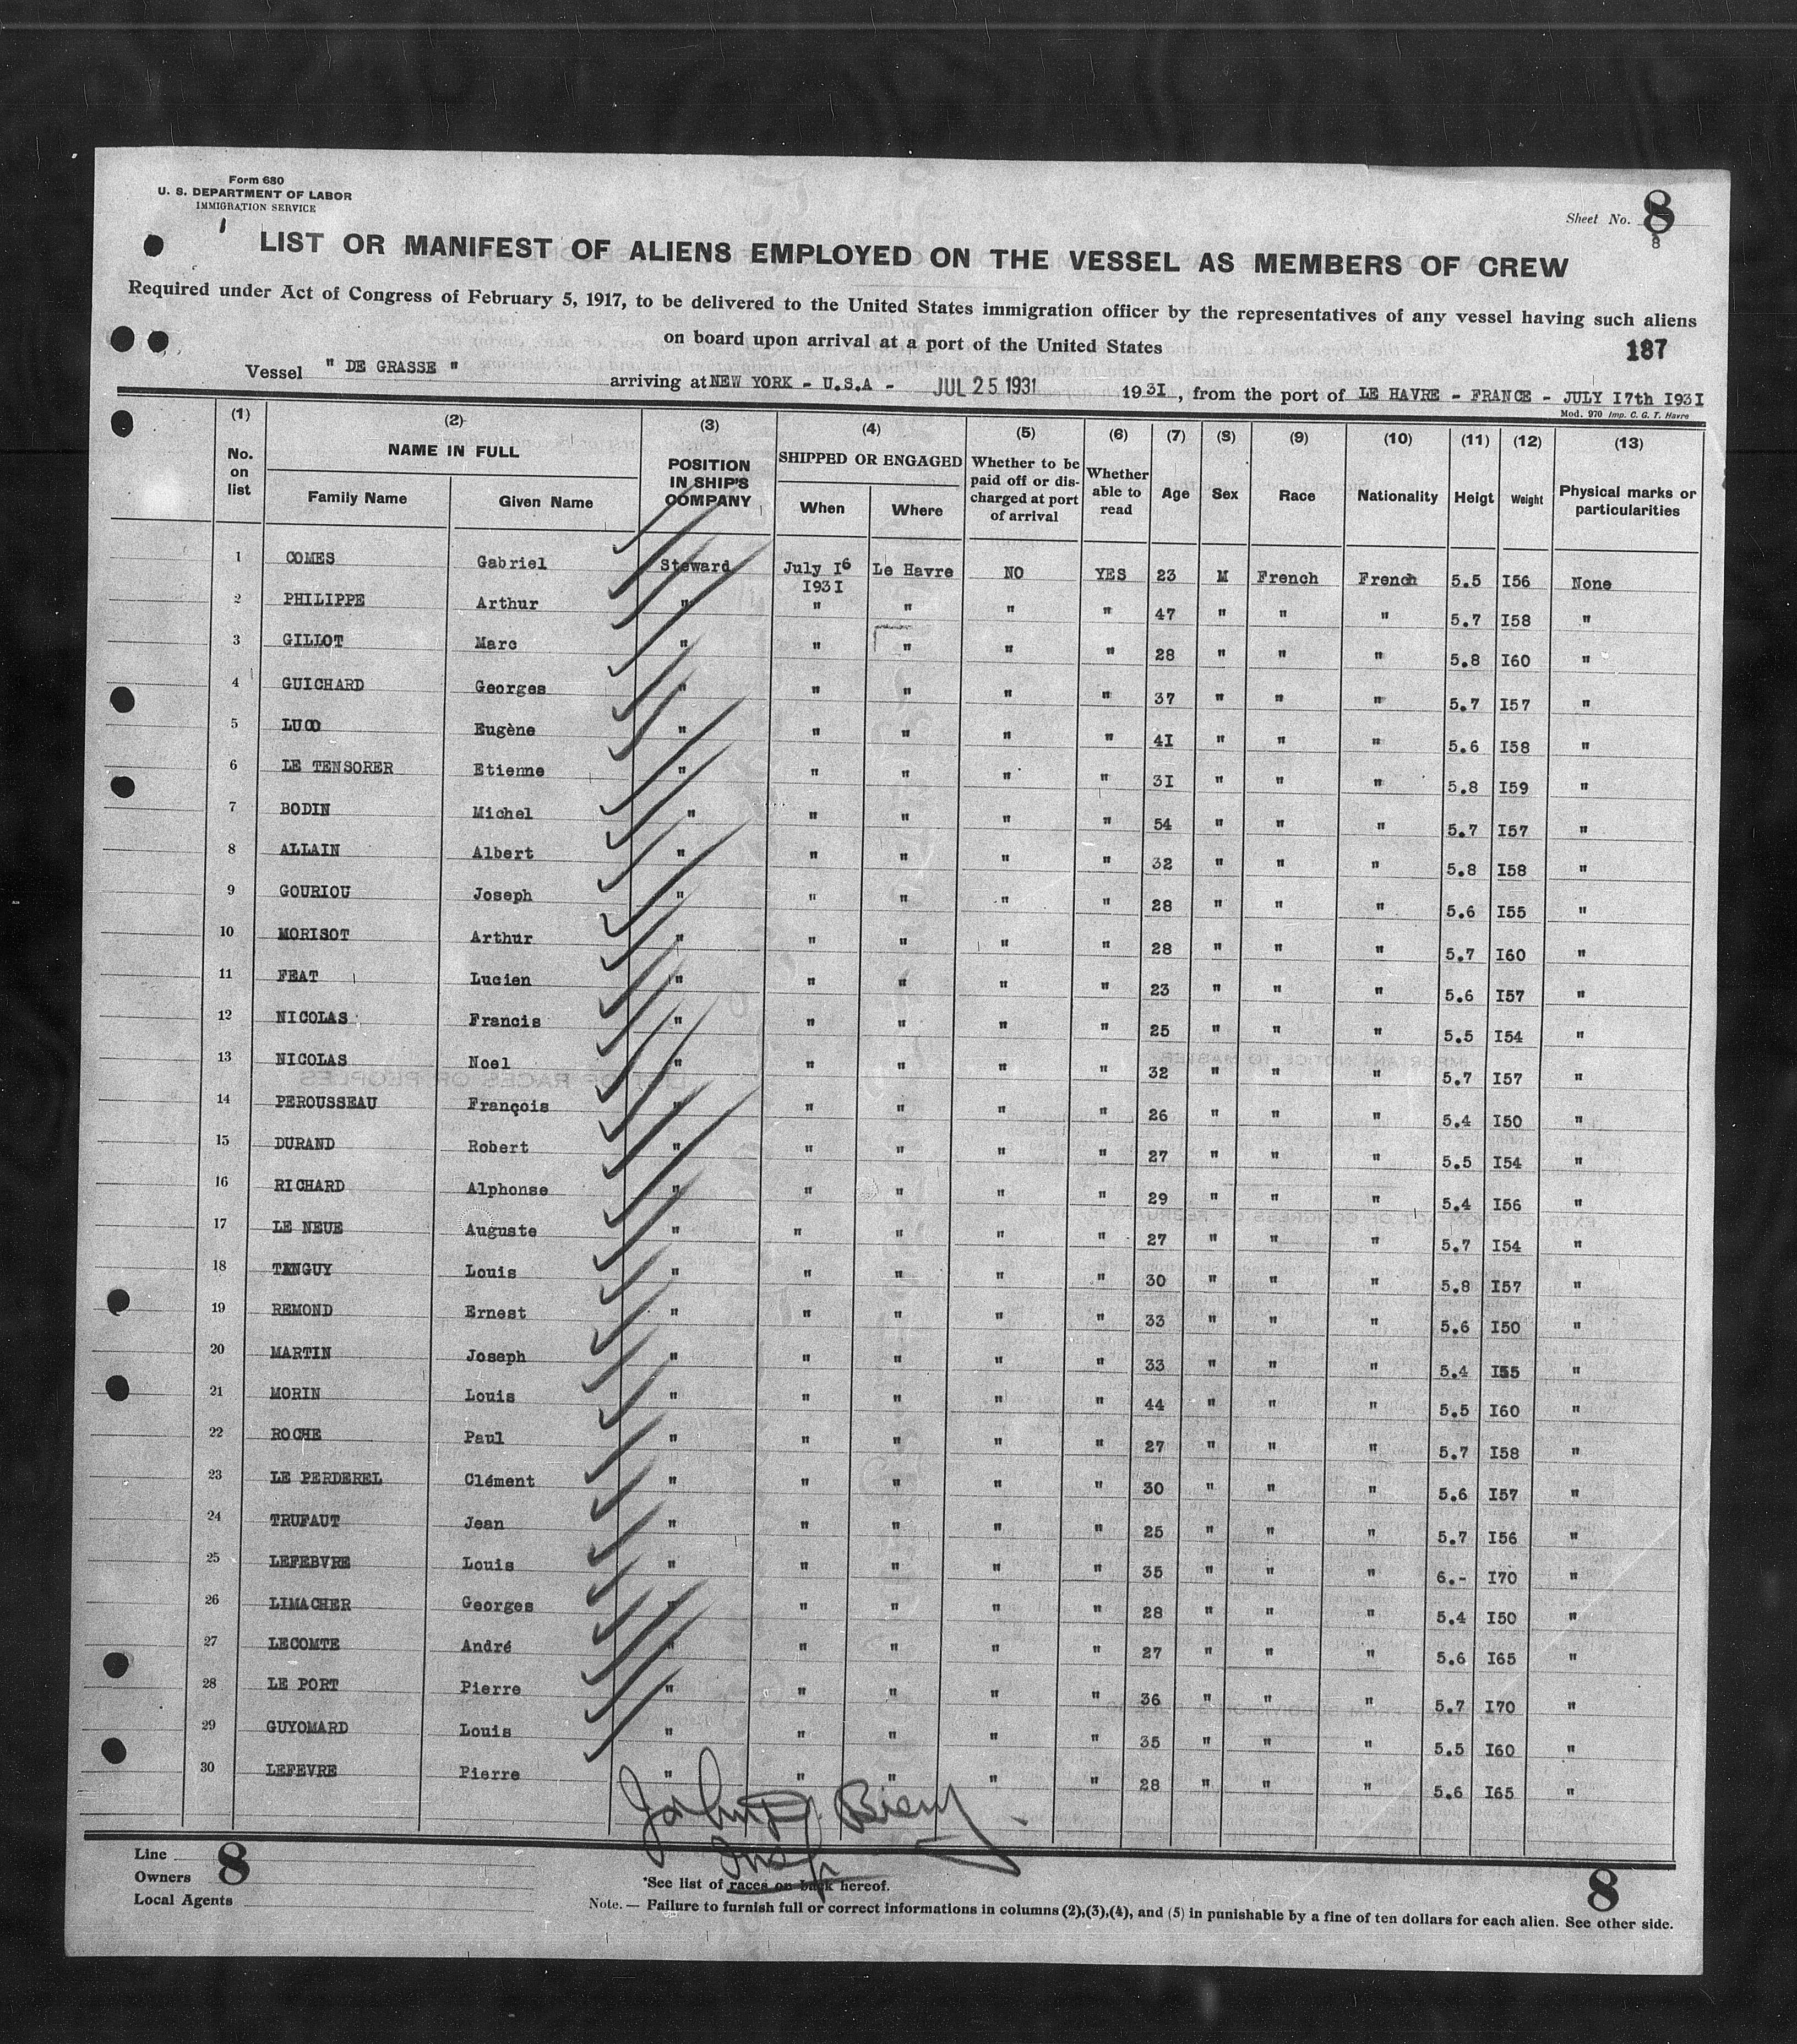 Form 680
U. S. DEPARTMENT OF LABOR
IMMIGRATION SERVICE
Sheet No. 8
8
LIST OR MANIFEST OF ALIENS EMPLOYED ON THE VESSEL AS MEMBERS OF CREW
Required under Act of Congress of February 5, 1917, to be delivered to the United States immigration officer by the representatives of any vessel having such aliens
on board upon arrival at a port of the United States
187
Vessel " DE GRASSE " arriving at NEW YORK - U.S.A - JUL 25 1931 1931, from the port of LE HAVRE - FRANCE - JULY I7th I93I
Mod. 970 Imp. C. G. T. Havre
(1) (2) (3) (4) (5) (6) (7) (8) (9) (10) (11) (12) (13)
No. on list NAME IN FULL Family Name Given Name POSITION IN SHIP'S COMPANY SHIPPED OR ENGAGED When Where Whether to be paid off or discharged at port of arrival Whether able to read Age Sex Race Nationality Heigt Weight Physical marks or particularities
1 COMES Gabriel Steward July I6 I93I Le Havre NO YES 23 M French French 5.5 I56 None
2 PHILIPPE Arthur " " " " " 47 " " " 5.7 I58 "
3 GILLOT Marc " " " " " 28 " " " 5.8 I60 "
4 GUICHARD Georges " " " " " 37 " " " 5.7 I57 "
5 LUCO Eugène " " " " " 4I " " " 5.6 I58 "
6 LE TENSORER Etienne " " " " " 3I " " " 5.8 I59 "
7 BODIN Michel " " " " " 54 " " " 5.7 I57 "
8 ALLAIN Albert " " " " " 32 " " " 5.8 I58 "
9 GOURIOU Joseph " " " " " 28 " " " 5.6 I55 "
10 MORISOT Arthur " " " " " 28 " " " 5.7 I60 "
11 FEAT Lucien " " " " " 23 " " " 5.6 I57 "
12 NICOLAS Francis " " " " " 25 " " " 5.5 I54 "
13 NICOLAS Noel " " " " " 32 " " " 5.7 I57 "
14 PEROUSSEAU François " " " " " 26 " " " 5.4 I50 "
15 DURAND Robert " " " " " 27 " " " 5.5 I54 "
16 RICHARD Alphonse " " " " " 29 " " " 5.4 I56 "
17 LE NEUE Auguste " " " " " 27 " " " 5.7 I54 "
18 TANGUY Louis " " " " " 30 " " " 5.8 I57 "
19 REMOND Ernest " " " " " 33 " " " 5.6 I50 "
20 MARTIN Joseph " " " " " 33 " " " 5.4 I55 "
21 MORIN Louis " " " " " 44 " " " 5.5 I60 "
22 ROCHE Paul " " " " " 27 " " " 5.7 I58 "
23 LE PERDEREL Clément " " " " " 30 " " " 5.6 I57 "
24 TRUFAUT Jean " " " " " 25 " " " 5.7 I56 "
25 LEFEBVRE Louis " " " " " 35 " " " 6.- I70 "
26 LIMACHER Georges " " " " " 28 " " " 5.4 I50 "
27 LECOMTE André " " " " " 27 " " " 5.6 I65 "
28 LE PORT Pierre " " " " " 36 " " " 5.7 I70 "
29 GUYOMARD Louis " " " " " 35 " " " 5.5 I60 "
30 LEFEVRE Pierre " " " " " 28 " " " 5.6 I65 "
John
Insp
Line
Owners 8
Local Agents
8
*See list of races on back hereof.
Note. — Failure to furnish full or correct informations in columns (2),(3),(4), and (5) in punishable by a fine of ten dollars for each alien. See other side.